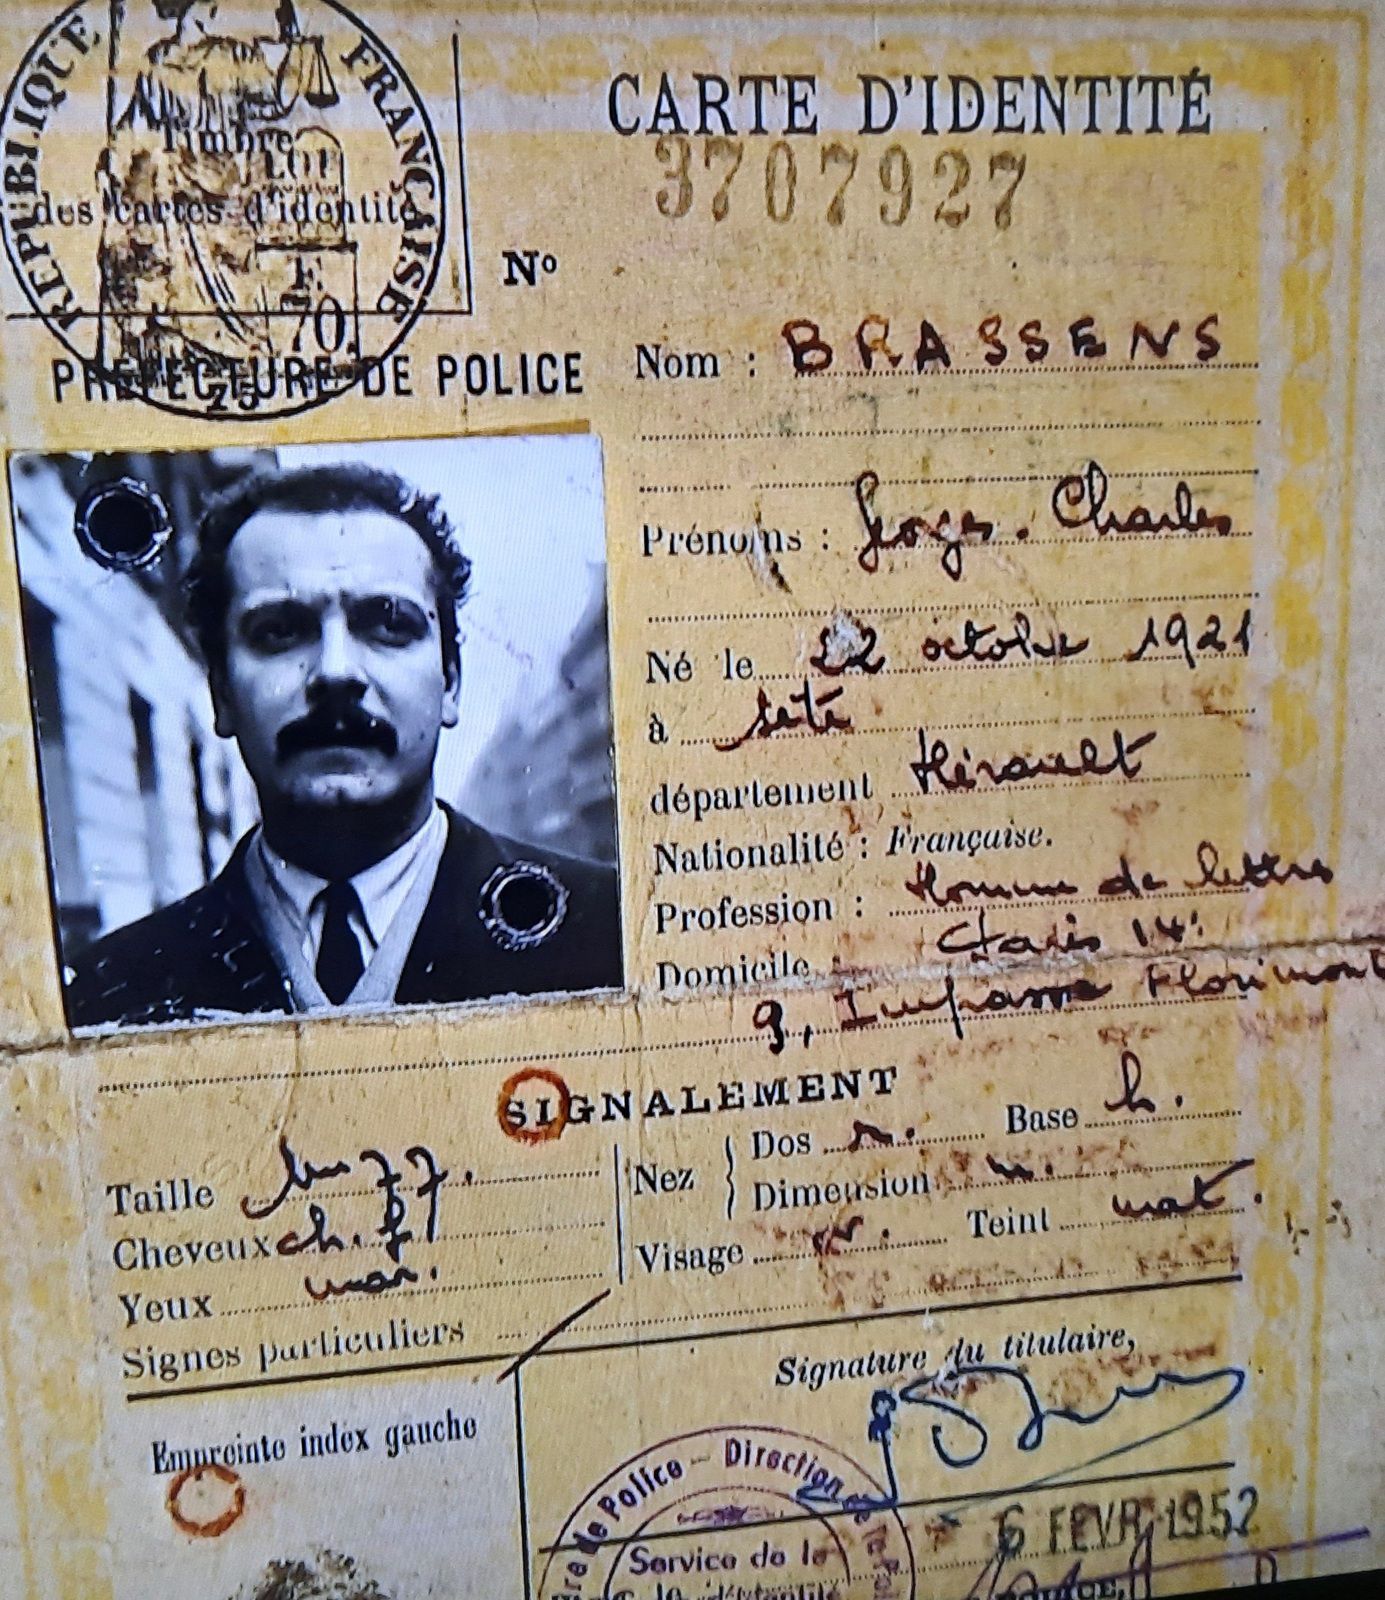 RÉPUBLIQUE FRANÇAISE
Timbre
des cartes d'identité
F.
70
25
CARTE D'IDENTITÉ
3707927
Nº
PRÉFECTURE DE POLICE
Nom : BRASSENS
Prénoms : Georges. Charles
Né le 22 octobre 1921
à Sète
département Hérault
Nationalité : Française.
Profession : Homme de lettres
Domicile Paris 14e
9, Impasse Florimont
SIGNALEMENT
Taille 1m77.
Cheveux ch. f
Yeux mar.
Signes particuliers
Nez
Dos r. Base h.
Dimension m.
Visage ov. Teint mat.
Empreinte index gauche
Signature du titulaire,
de Police - Direction de la
Service de la
6 FEVR 1952